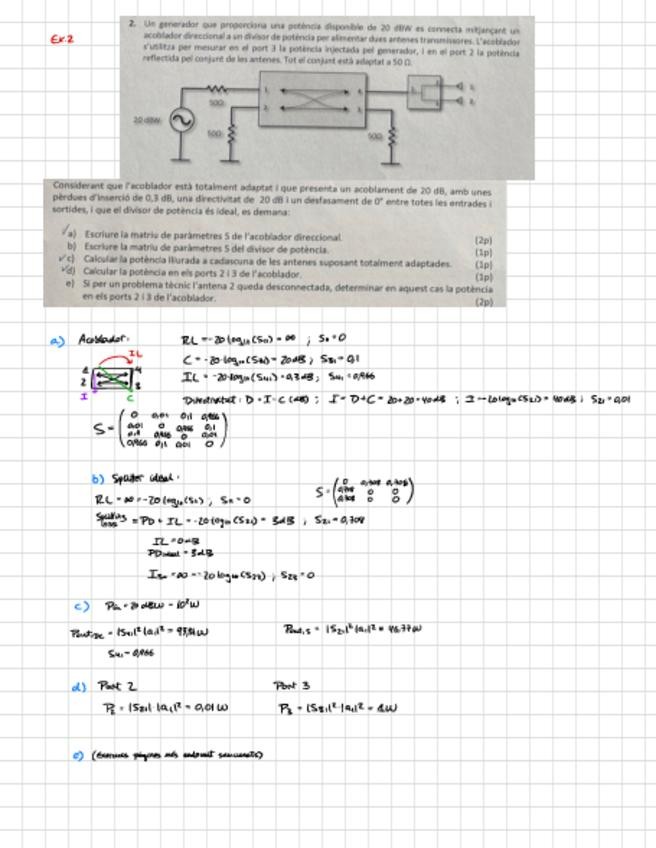 Ex.2
2. Un generador que proporciona una potència disponible de 20 dBW es connecta mitjançant un
acoblador direccional a un divisor de potència per alimentar dues antenes transmissores. L'acoblador
s'utilitza per mesurar en el port 3 la potència injectada pel generador, i en el port 2 la potència
reflectida pel conjunt de les antenes. Tot el conjunt està adaptat a 50 Ω.
50Ω
20 dBW
50Ω
50Ω
Considerant que l'acoblador està totalment adaptat i que presenta un acoblament de 20 dB, amb unes
pèrdues d'inserció de 0,3 dB, una directivitat de 20 dB i un desfasament de 0° entre totes les entrades i
sortides, i que el divisor de potència és ideal, es demana:
a) Escriure la matriu de paràmetres S de l'acoblador direccional. (2p)
b) Escriure la matriu de paràmetres S del divisor de potència. (1p)
c) Calcular la potència lliurada a cadascuna de les antenes suposant totalment adaptades. (1p)
d) Calcular la potència en els ports 2 i 3 de l'acoblador. (1p)
e) Si per un problema tècnic l'antena 2 queda desconnectada, determinar en aquest cas la potència
en els ports 2 i 3 de l'acoblador. (2p)
a) Acoblador:
RL = -20 log₁₀(S₁₁) = ∞ ; S₁₁ = 0
C = -20 log₁₀(S₃₁) = 20dB ; S₃₁ = 0,1
IL = -20 log₁₀(S₄₁) = 0,3dB ; S₄₁ = 0,966
Directivitat: D = I - C (dB) ; I = D + C = 20 + 20 = 40dB ; I = -20 log₁₀(S₂₁) = 40dB ; S₂₁ = 0,01
IL
1 4
2 3
I C
S =
0 0,01 0,1 0,966
0,01 0 0,966 0,1
0,1 0,966 0 0,01
0,966 0,1 0,01 0
b) Splitter ideal:
RL = ∞ = -20 log₁₀(S₁₁) ; S₁₁ = 0
S =
0 0,708 0,708
0,708 0 0
0,708 0 0
Splitting loss = PD + IL = -20 log₁₀(S₂₁) = 3dB ; S₂₁ = 0,708
IL = 0dB
PD ideal = 3dB
= ∞ = -20 log₁₀(S₂₃) ; S₂₃ = 0
c) Pin = 20 dBW = 10² W
= |S₄₁|² |a₁|² = W
= |S₂₁|² |a₁|² = 46,77W
S₄₁ = 0,966
d) Port 2
Port 3
P₂ = |S₂₁| |a₁|² = 0,01 W
P₃ = |S₃₁|² |a₁|² = 1W
e)